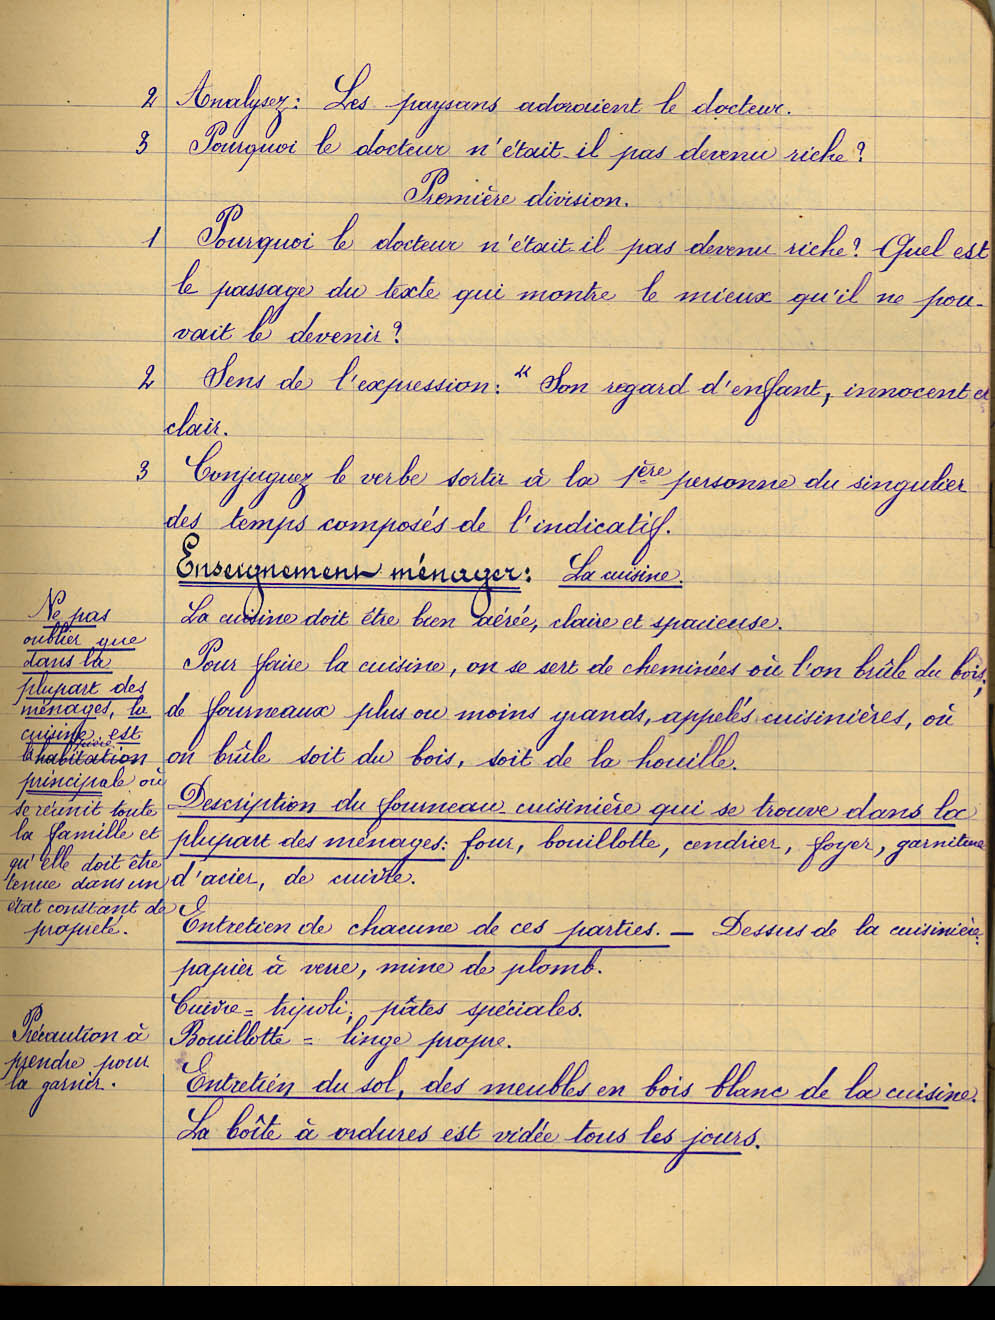 2 Analysez: Les paysans adoraient le docteur.
3 Pourquoi le docteur n'était-il pas devenu riche?
Première division.
1 Pourquoi le docteur n'était-il pas devenu riche? Quel est
le passage du texte qui montre le mieux qu'il ne pou-
vait le devenir?
2 Sens de l'expression: "Son regard d'enfant, innocent et
clair.
3 Conjuguez le verbe sortir à la 1ère personne du singulier
des temps composés de l'indicatif.
Enseignement ménager: La cuisine.
La cuisine doit être bien aérée, claire et spacieuse.
Pour faire la cuisine, on se sert de cheminées où l'on brûle du bois,
de fourneaux plus ou moins grands, appelés cuisinières, où
on brûle soit du bois, soit de la houille.
Description du fourneau-cuisinière qui se trouve dans la
plupart des ménages: four, bouillotte, cendrier, foyer, garniture
d'acier, de cuivre.
Entretien de chacune de ces parties. — Dessus de la cuisinière:
papier à verre, mine de plomb.
Cuivre = tripoli; pâtes spéciales.
Bouillotte = linge propre.
Entretien du sol, des meubles en bois blanc de la cuisine.
La boîte à ordures est vidée tous les jours.
Ne pas
oublier que
dans la
plupart des
ménages, la
cuisine est
l'habitation
principale où
se réunit toute
la famille et
qu'elle doit être
tenue dans un
état constant de
propreté.
Précaution à
prendre pour
la garnir.